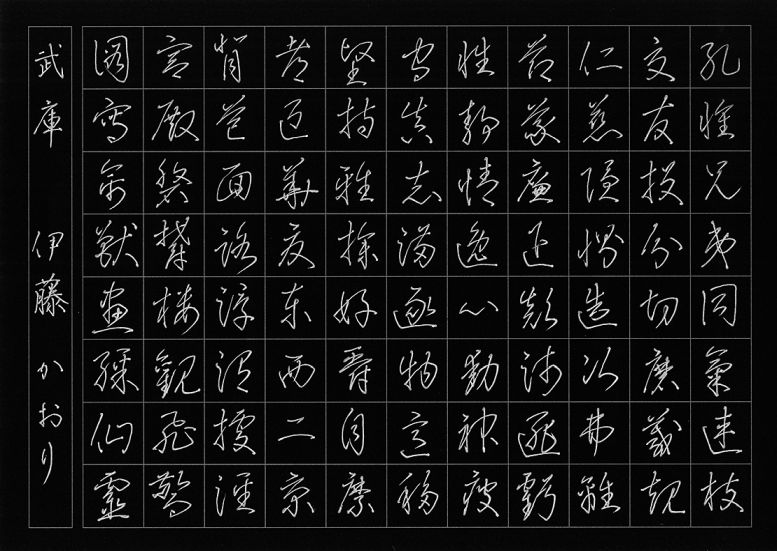 孔懷兄弟同氣連枝
交友投分切磨箴規
仁慈隱惻造次弗離
節義廉退顛沛匪虧
性靜情逸心動神疲
守真志滿逐物意移
堅持雅操好爵自縻
都邑華夏東西二京
背芒面洛浮渭據涇
宮殿盤鬱樓觀飛驚
圖寫禽獸畫綵仙靈
武庫 伊藤かおり